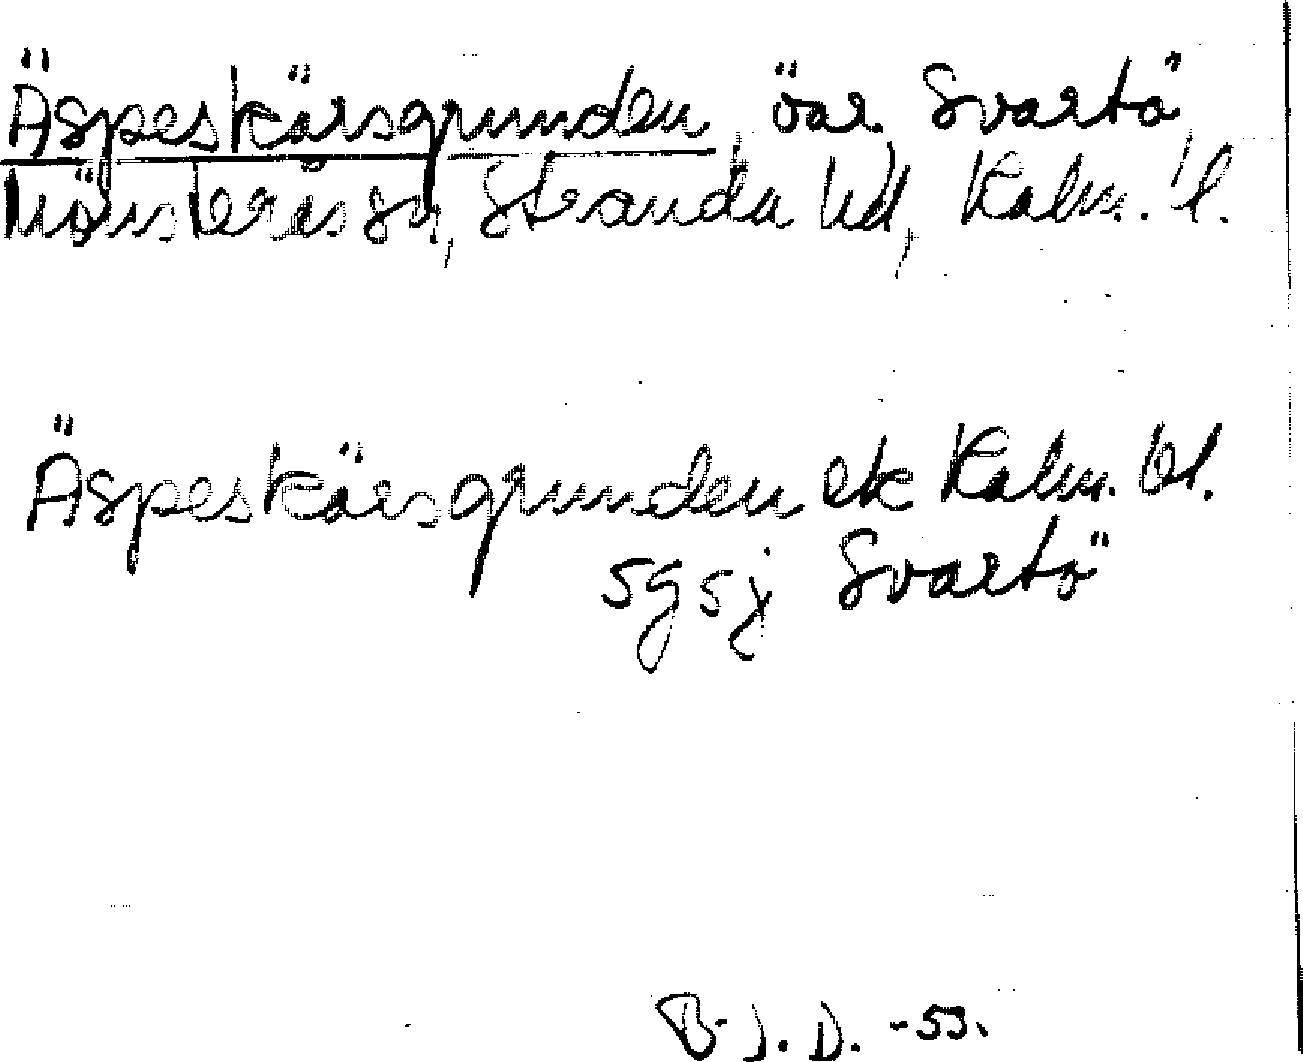 Äspeskärsgrunden öar. Svartö,
Mönsterås sn, Stranda hd, Kalm. l.
Äspeskärsgrunden ek Kalm. bl.
sgsj Svartö
B. J. D. -53.